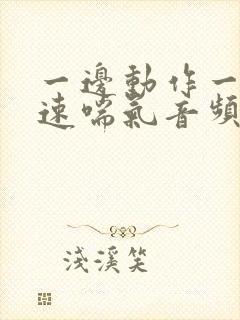 一邊動作一
速喘氣音頻
淺溪笑